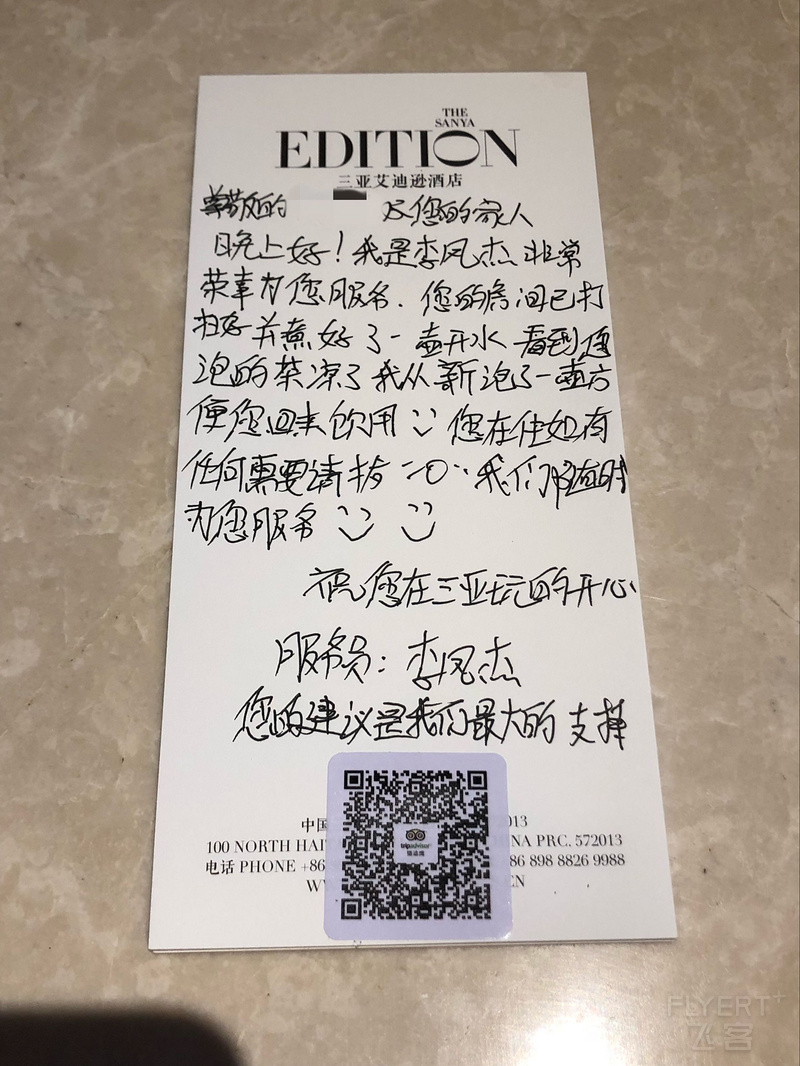 THE
SANYA
EDITION
三亚艾迪逊酒店
尊敬的 及您的家人
晚上好！我是李凤杰非常
荣幸为您服务．您的房间已打
扫好并煮好了一壶开水看到您
泡的茶凉了我从新泡了一壶方
便您回来饮用 您在住如有
任何需要请拨"0"我们都随时
为您服务
祝您在三亚玩的开心
服务员：李凤杰
您的建议是我们最大的支持
tripadvisor
猫途鹰
中国 013
100 NORTH HAI NA PRC. 572013
电话 PHONE +86 86 898 8826 9988
WW EN
FLYERT+
飞客